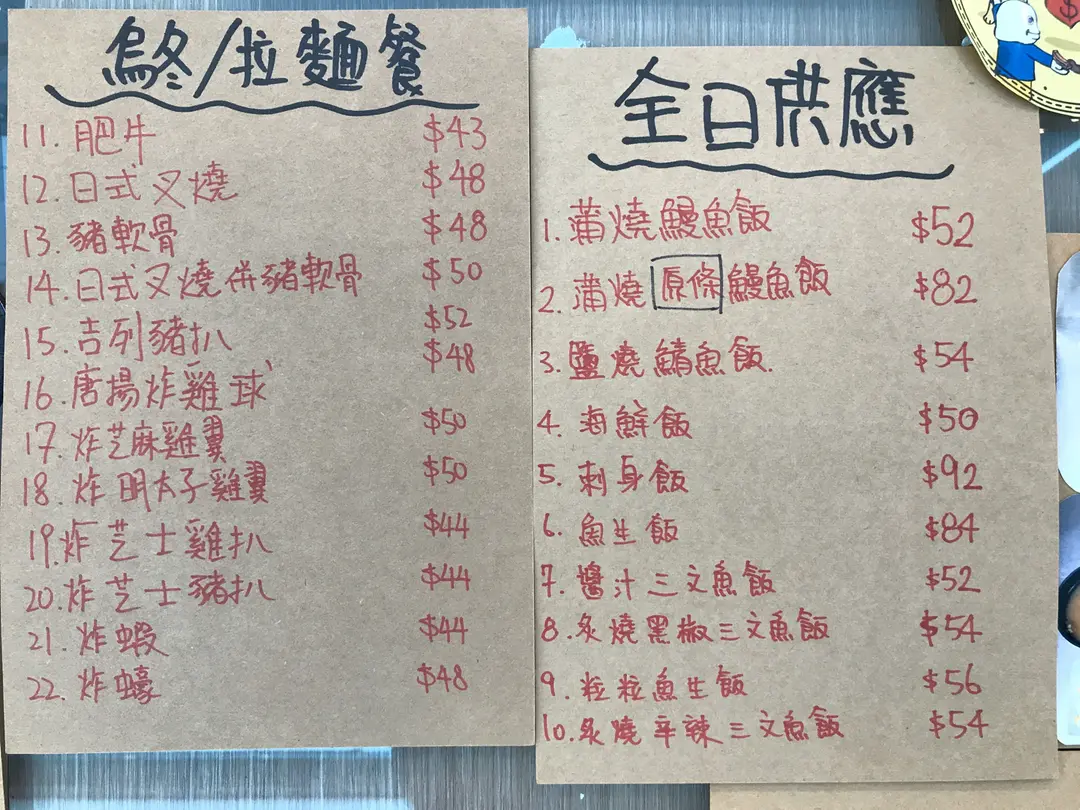 烏冬/拉麵餐
11. 肥牛 $43
12. 日式叉燒 $48
13. 豬軟骨 $48
14. 日式叉燒併豬軟骨 $50
15. 吉列豬扒 $52
16. 唐揚炸雞球 $48
17. 炸芝麻雞翼 $50
18. 炸明太子雞翼 $50
19. 炸芝士雞扒 $44
20. 炸芝士豬扒 $44
21. 炸蝦 $44
22. 炸蠔 $48
全日供應
1. 蒲燒鰻魚飯 $52
2. 蒲燒原條鰻魚飯 $82
3. 鹽燒鯖魚飯. $54
4. 海鮮飯 $50
5. 刺身飯 $92
6. 魚生飯 $84
7. 醬汁三文魚飯 $52
8. 炙燒黑椒三文魚飯 $54
9. 粒粒魚生飯 $56
10. 炙燒辛辣三文魚飯 $54
$